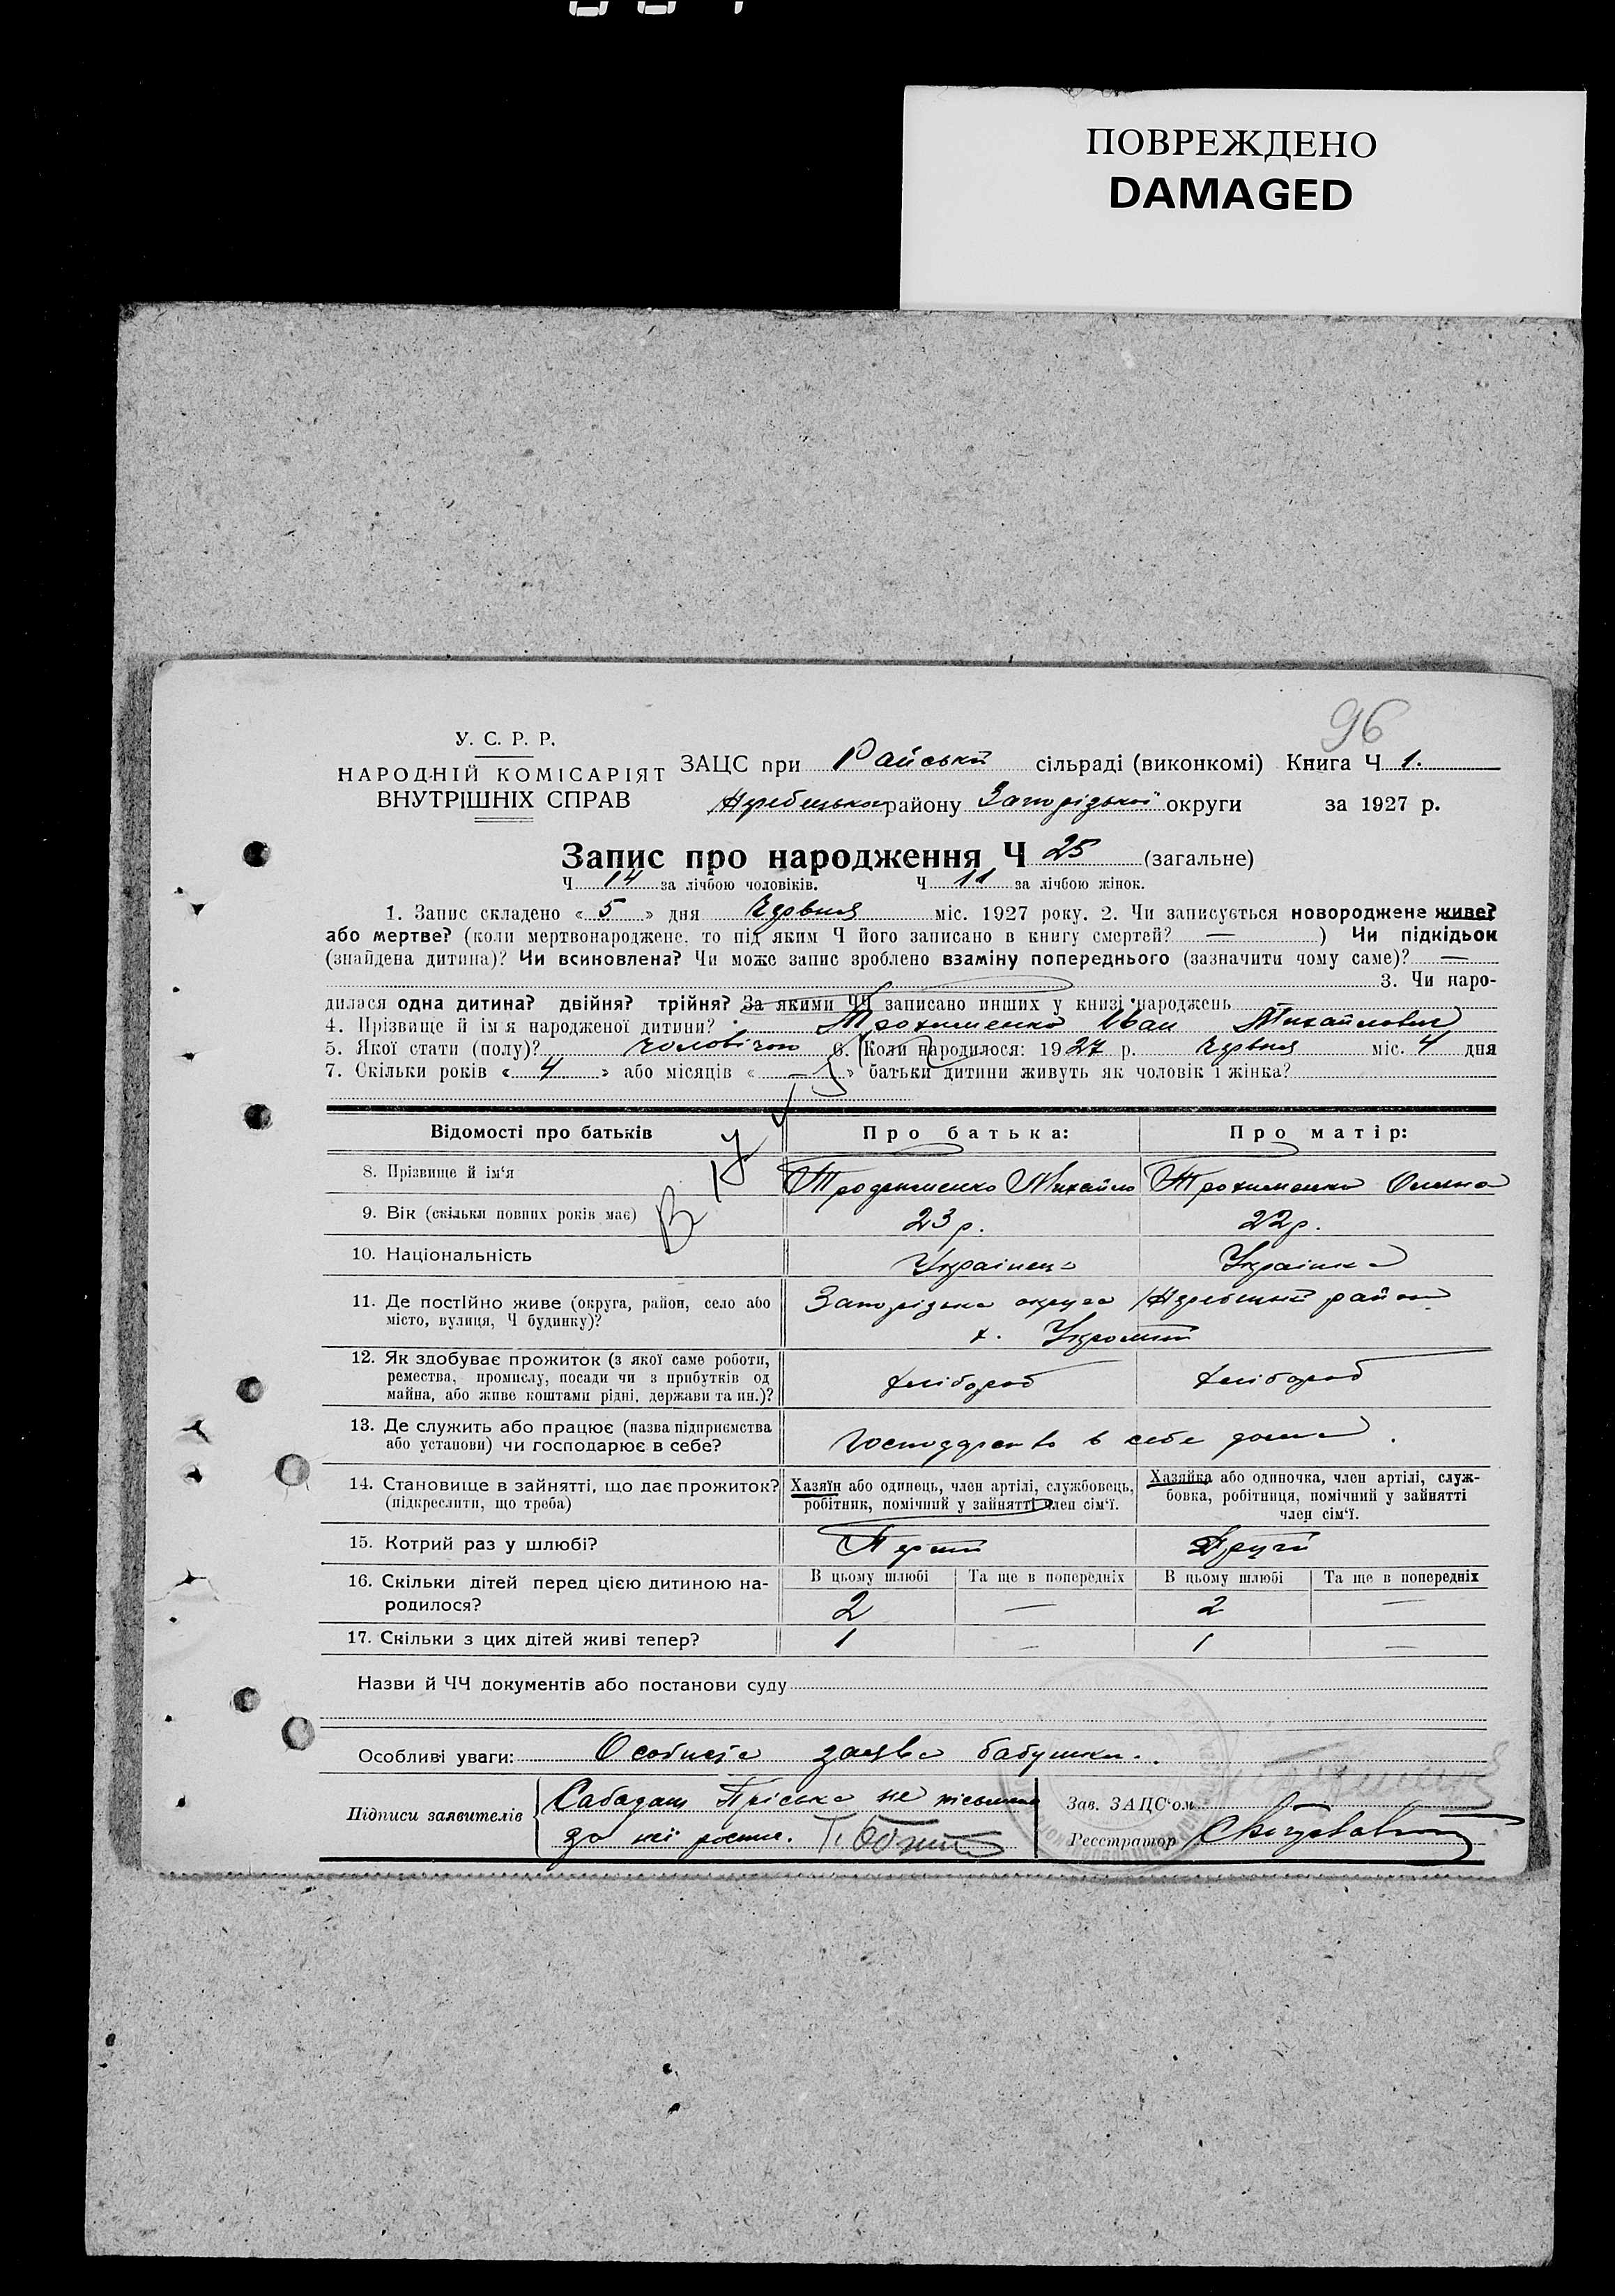 ПОВРЕЖДЕНО
DAMAGED
96
У. С. Р. Р.
НАРОДНІЙ КОМІСАРІЯТ
ВНУТРІШНІХ СПРАВ
ЗАЦС при Райській сільраді (виконкомі) Книга Ч 1.
району Запорізької округи за 1927 р.
Запис про народження Ч 25 (загальне)
Ч 14 за лічбою чоловіків. Ч 11 за лічбою жінок.
1. Запис складено « 5 » дня Червня міс. 1927 року. 2. Чи записується новороджене живе?
або мертве? (коли мертвонароджене, то під яким Ч його записано в книгу смертей? — ) Чи підкідьок
(знайдена дитина)? Чи всиновлена? Чи може запис зроблено взаміну попереднього (зазначити чому саме)? —
3. Чи наро-
дилася одна дитина? двійня? трійня? За якими ЧЧ записано инших у книзі народжень
4. Прізвище й ім'я народженої дитини? Трохименко Іван Михайлович
5. Якої стати (полу)? чоловічої 6. Коли народилося: 1927 р. Червня міс. 4 дня
7. Скільки років « 4 » або місяців « — » батьки дитини живуть як чоловік і жінка?
Відомості про батьків Про батька: Про матір:
8. Прізвище й ім'я Трохименко Михайло Трохименко Олена
9. Вік (скільки повних років має) 23 р. 22 р.
10. Національність Українець Українка
11. Де постійно живе (округа, район, село або Запорізька округа район
місто, вулиця, Ч будинку)? х.
12. Як здобуває прожиток (з якої саме роботи,
ремества, промислу, посади чи з прибутків од хлібороб хлібороб
майна, або живе коштами рідні, держави та ин.)?
13. Де служить або працює (назва підприємства
або установи) чи господарює в себе? господарство в себе дома.
14. Становище в зайнятті, що дає прожиток? Хазяїн або одинець, член артілі, службовець, Хазяйка або одиночка, член артілі, служ-
(підкреслити, що треба) робітник, помічний у зайнятті член сім'ї. бовка, робітниця, помічний у зайнятті
член сім'ї.
15. Котрий раз у шлюбі? Перший Другий
16. Скільки дітей перед цією дитиною на- В цьому шлюбі Та ще в попередніх В цьому шлюбі Та ще в попередніх
родилося? 2 — 2 —
17. Скільки з цих дітей живі тепер? 1 — 1 —
Назви й ЧЧ документів або постанови суду
Особливі уваги: Особиста заява бабушки.
Підписи заявителів Сабадаш Пріська не письменна
за неї росп.
Зав. ЗАЦС'ом
Реєстратор